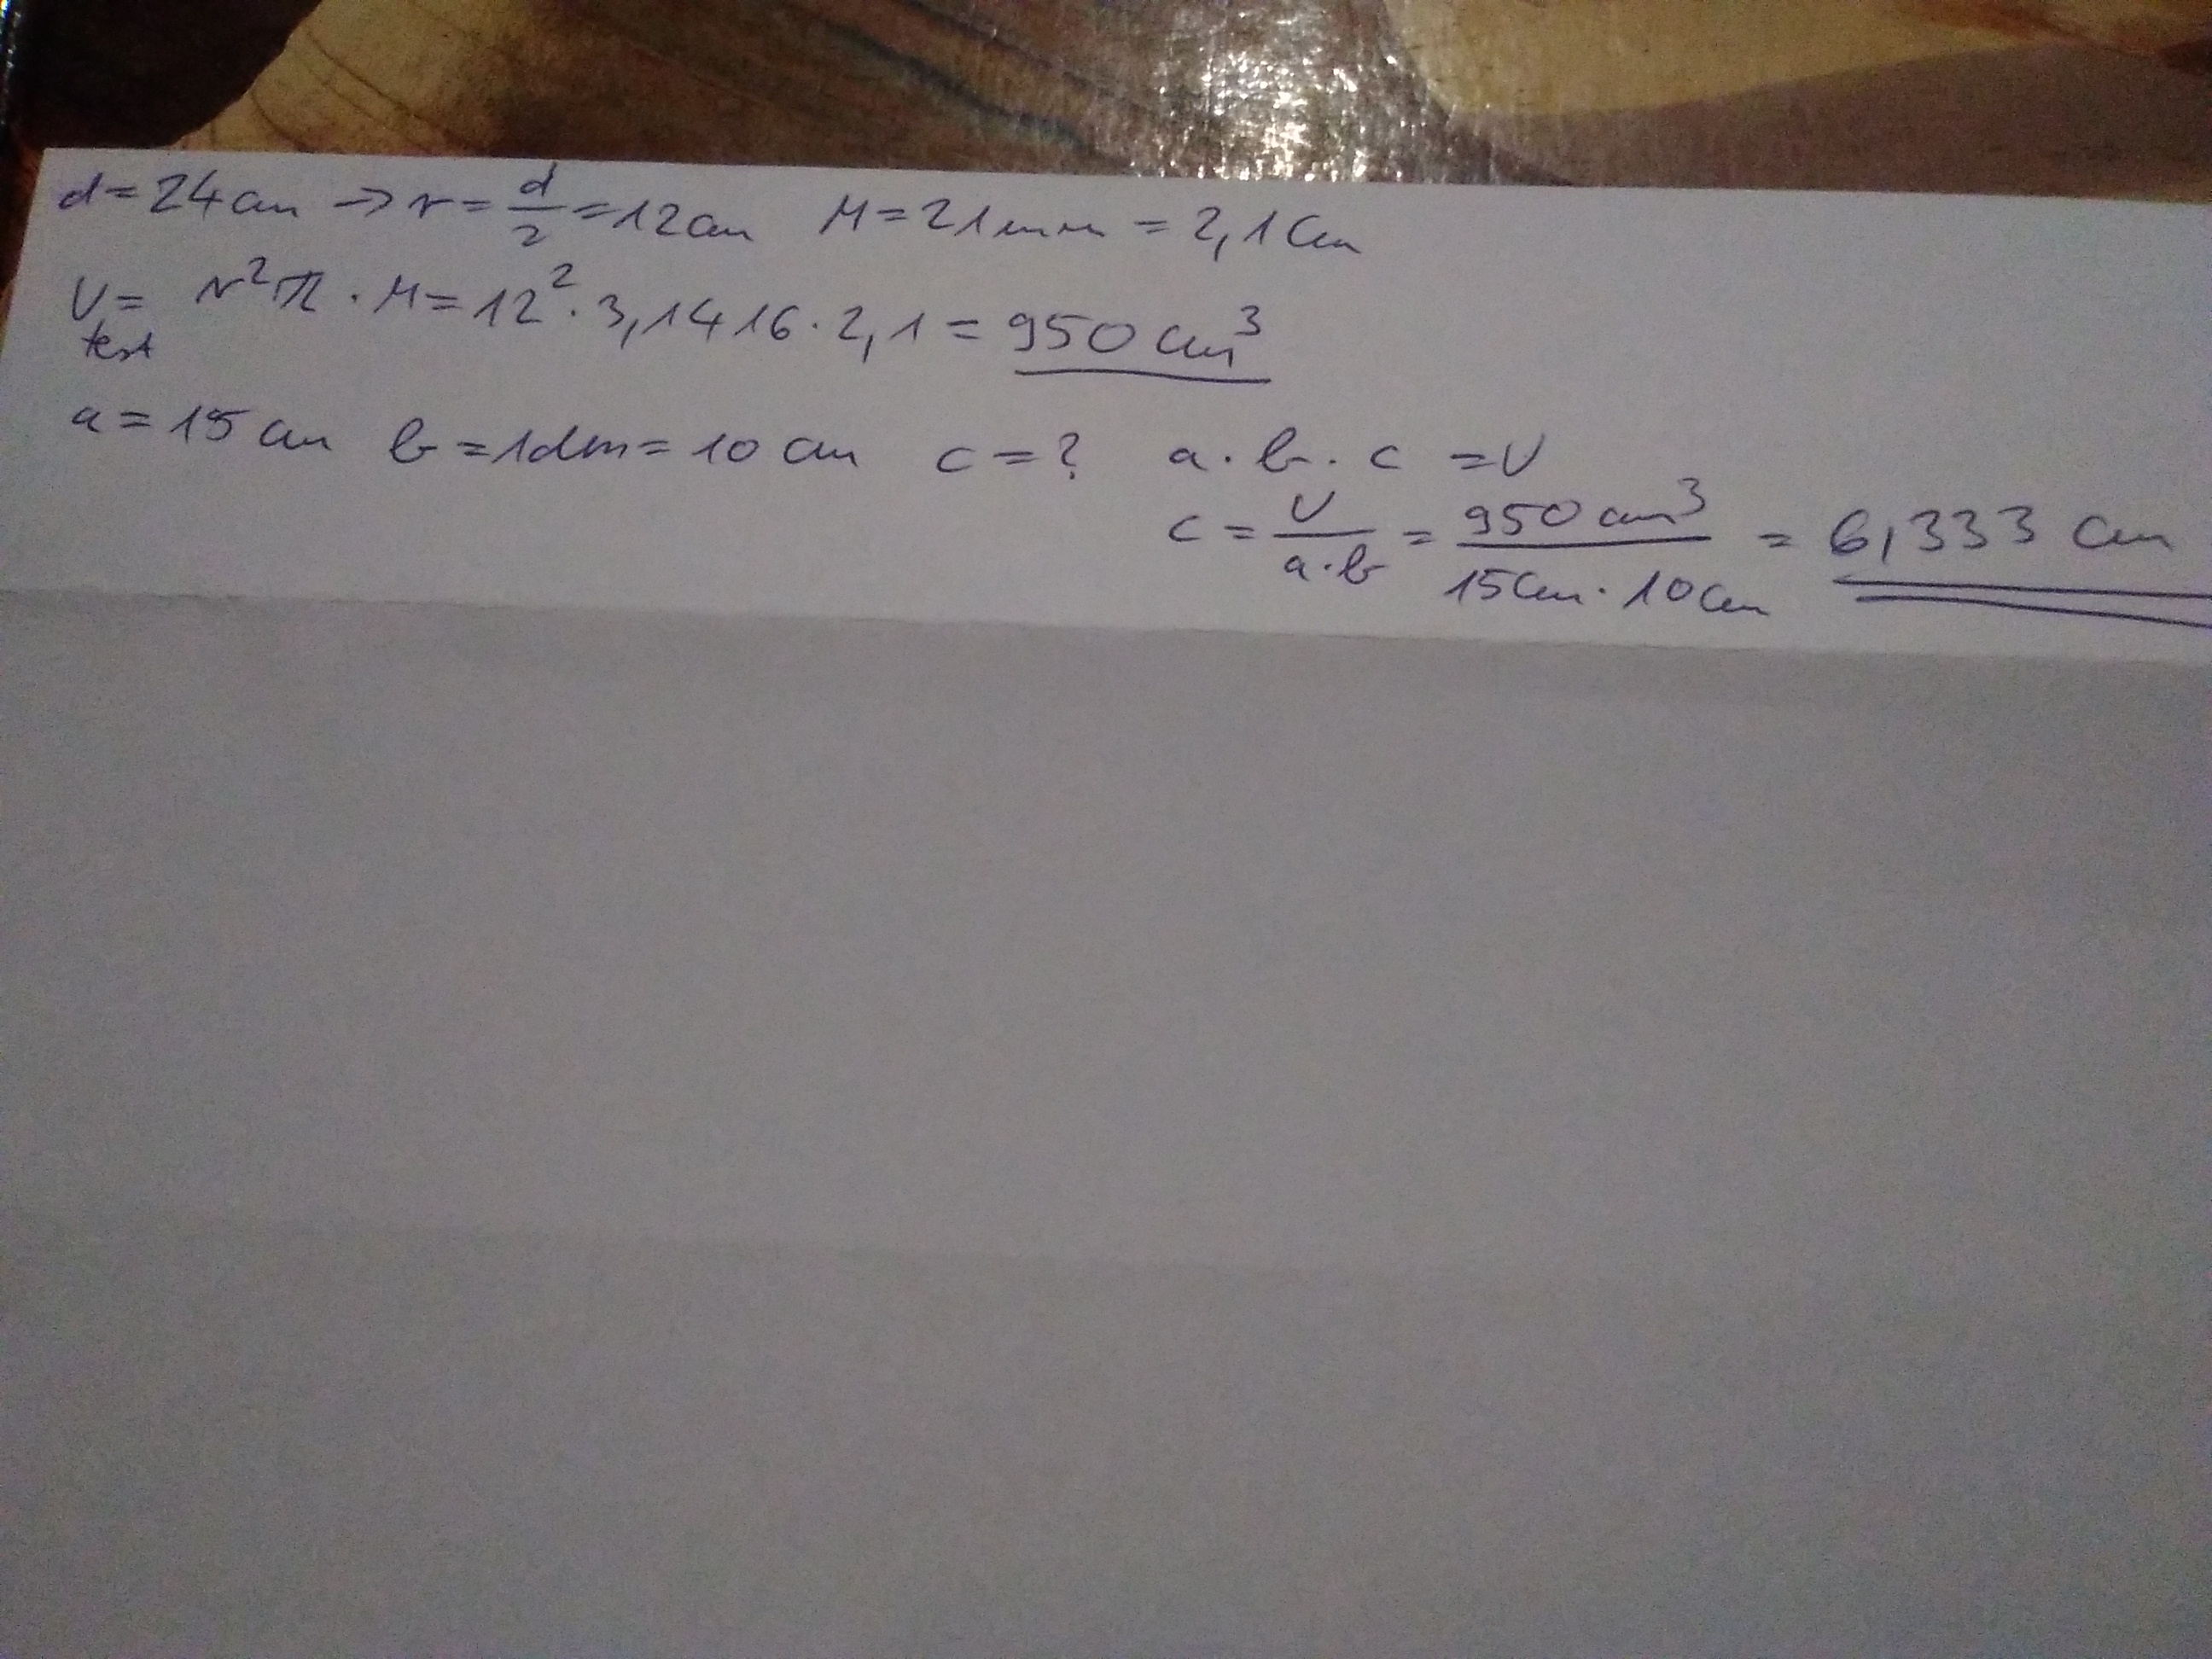 d=24cm → r = d/2 = 12cm M = 21mm = 2,1cm
V = r²π · M = 12² · 3,1416 · 2,1 = 950 cm³
test
a = 15 cm b = 1dm = 10 cm c = ? a · b · c = V
c = V/a·b = 950 cm³/15cm · 10cm = 6,333 cm